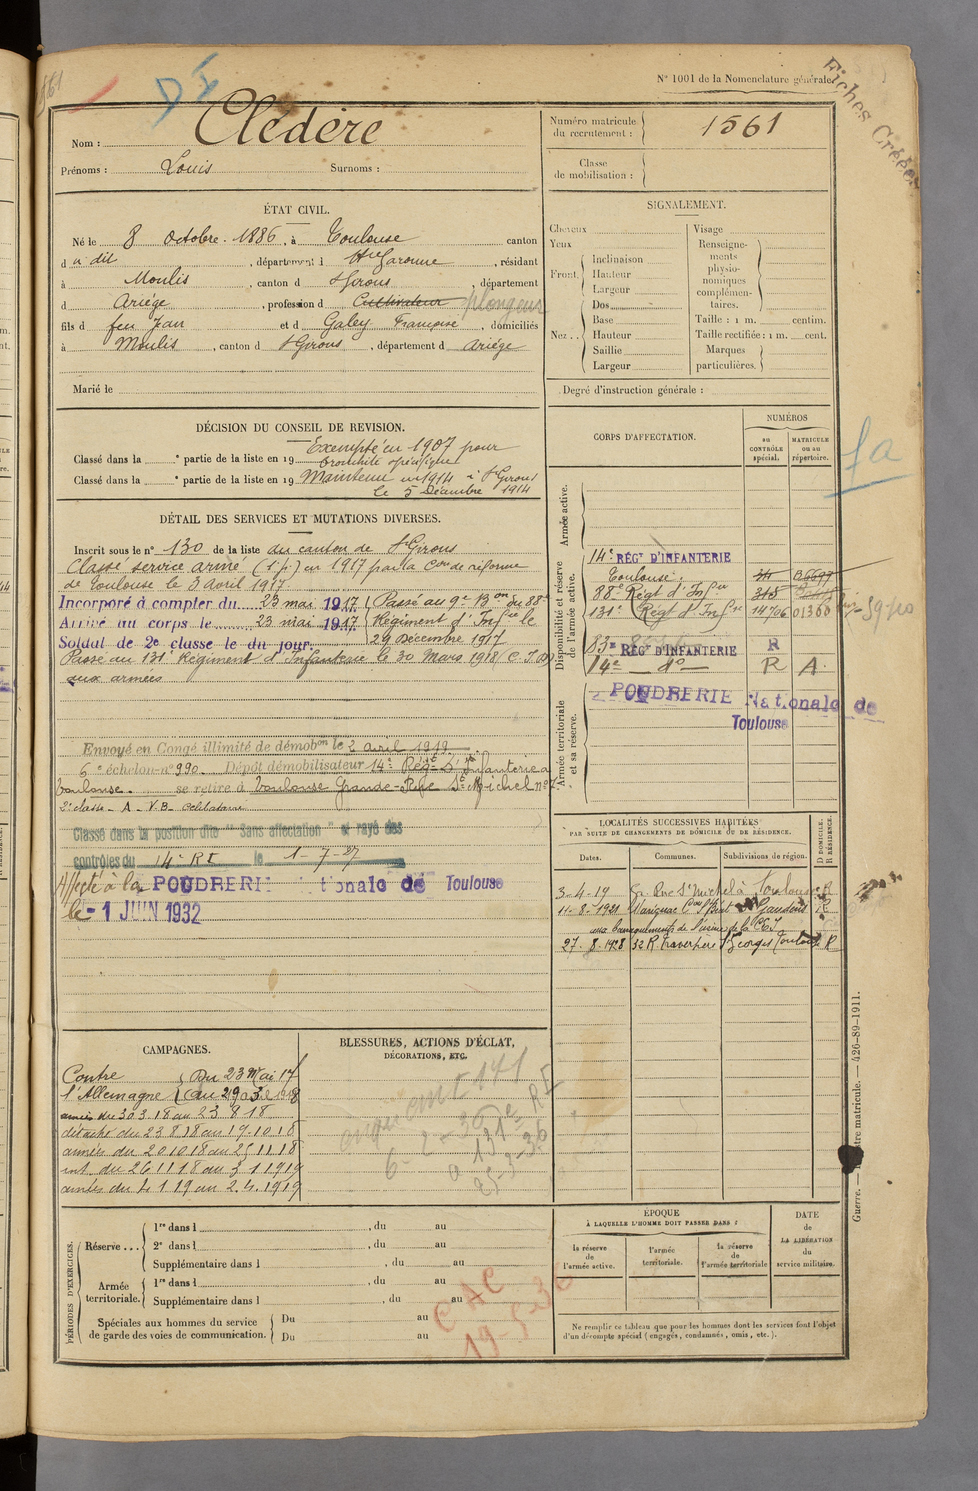 N° 1001 de la Nomenclature générale.
Fiches Créées
Nom : Clédère
Prénoms : Louis Surnoms :
Numéro matricule du recrutement : 1561
Classe de mobilisation :
ÉTAT CIVIL.
Né le 8 octobre 1886, à Toulouse canton
d u dit, département d Hte Garonne, résidant
à Moulis, canton d St Girons, département
d Ariège, profession d Cultivateur plongeur
fils d feu Jean et d Galey Françoise, domiciliés
à Moulis, canton d St Girons, département d Ariège
Marié le
SIGNALEMENT.
Cheveux
Yeux
Front.
Inclinaison
Hauteur
Largeur
Nez..
Dos
Base
Hauteur
Saillie
Largeur
Visage
Renseignements physionomiques complémentaires.
Taille : 1 m. centim.
Taille rectifiée : 1 m. cent.
Marques particulières.
Degré d'instruction générale :
DÉCISION DU CONSEIL DE REVISION.
Exempté en 1907 pour
Classé dans la e partie de la liste en 19 bronchite spécifique
Classé dans la e partie de la liste en 19 Maintenu en 1914 à St Girons
le 5 Décembre 1914
DÉTAIL DES SERVICES ET MUTATIONS DIVERSES.
Inscrit sous le n° 130 de la liste du canton de St Girons
Classé service armé (1 p.) en 1917 par la Con de réforme
de Toulouse le 3 avril 1917
Incorporé à compter du 23 mai 1917. Passé au 9e Bon du 88e
Arrivé au corps le 23 mai 1917. Régiment d'Infie le
Soldat de 2e classe le du jour. 29 Décembre 1917
Passé au 131 Régiment d'Infanterie le 30 Mars 1918
aux armées
Envoyé en Congé illimité de démobon le 2 avril 1919
6e échelon n° 990. Dépôt démobilisateur 14e Régt d'Infanterie à
Toulouse. se retire à Toulouse Grande-Rue St Michel n°
2e classe - A - V.B - Célibataire
Classé dans la position dite "Sans affectation" et rayé des
contrôles du 14e RI le 1-7-27
Affecté à la POUDRERIE Nationale de Toulouse
le -1 JUIN 1932
CORPS D'AFFECTATION.
NUMÉROS
au CONTRÔLE spécial.
MATRICULE ou au répertoire.
Armée active.
Disponibilité et réserve de l'armée active.
14e RÉGt D'INFANTERIE
Toulouse.
88e Régt d'Infie
131e Régt d'Infie 14706 01360
83e RÉGt D'INFANTERIE R
14e do R A
Armée territoriale et sa réserve.
POUDRERIE Nationale de
Toulouse
LOCALITÉS SUCCESSIVES HABITÉES
PAR SUITE DE CHANGEMENTS DE DOMICILE OU DE RÉSIDENCE.
Dates. Communes. Subdivisions de région. D DOMICILE. R RÉSIDENCE.
3-4-19 Gr. Rue St Michel à Toulouse R
11-8-1921 Marignac Con St Béat St Gaudens R
aux baraquements de l'usine de la
27-8-1928 32 R Traversière St Georges Toulouse R
CAMPAGNES.
Contre Du 23 Mai 17
l'Allemagne au 29 3 1918
armées du 30 3 18 au 23 8 18
détaché du 23 8 18 au 19-10-18
armées du 20 10 18 au 25 11 18
int. du 26 11 18 au 3 1 1919
armées du 4 1 19 au 2.4.1919
BLESSURES, ACTIONS D'ÉCLAT,
DÉCORATIONS, ETC.
PÉRIODES D'EXERCICES.
Réserve...
1re dans l , du au
2e dans l , du au
Supplémentaire dans l , du au
Armée territoriale.
1re dans l , du au
Supplémentaire dans l , du au
Spéciales aux hommes du service
de garde des voies de communication.
Du au
Du au
CAC
19-5-36
ÉPOQUE
À LAQUELLE L'HOMME DOIT PASSER DANS :
la réserve de l'armée active.
l'armée territoriale.
la réserve de l'armée territoriale
DATE de LA LIBÉRATION du service militaire.
Ne remplir ce tableau que pour les hommes dont les services font l'objet
d'un décompte spécial (engagés, condamnés, omis, etc.).